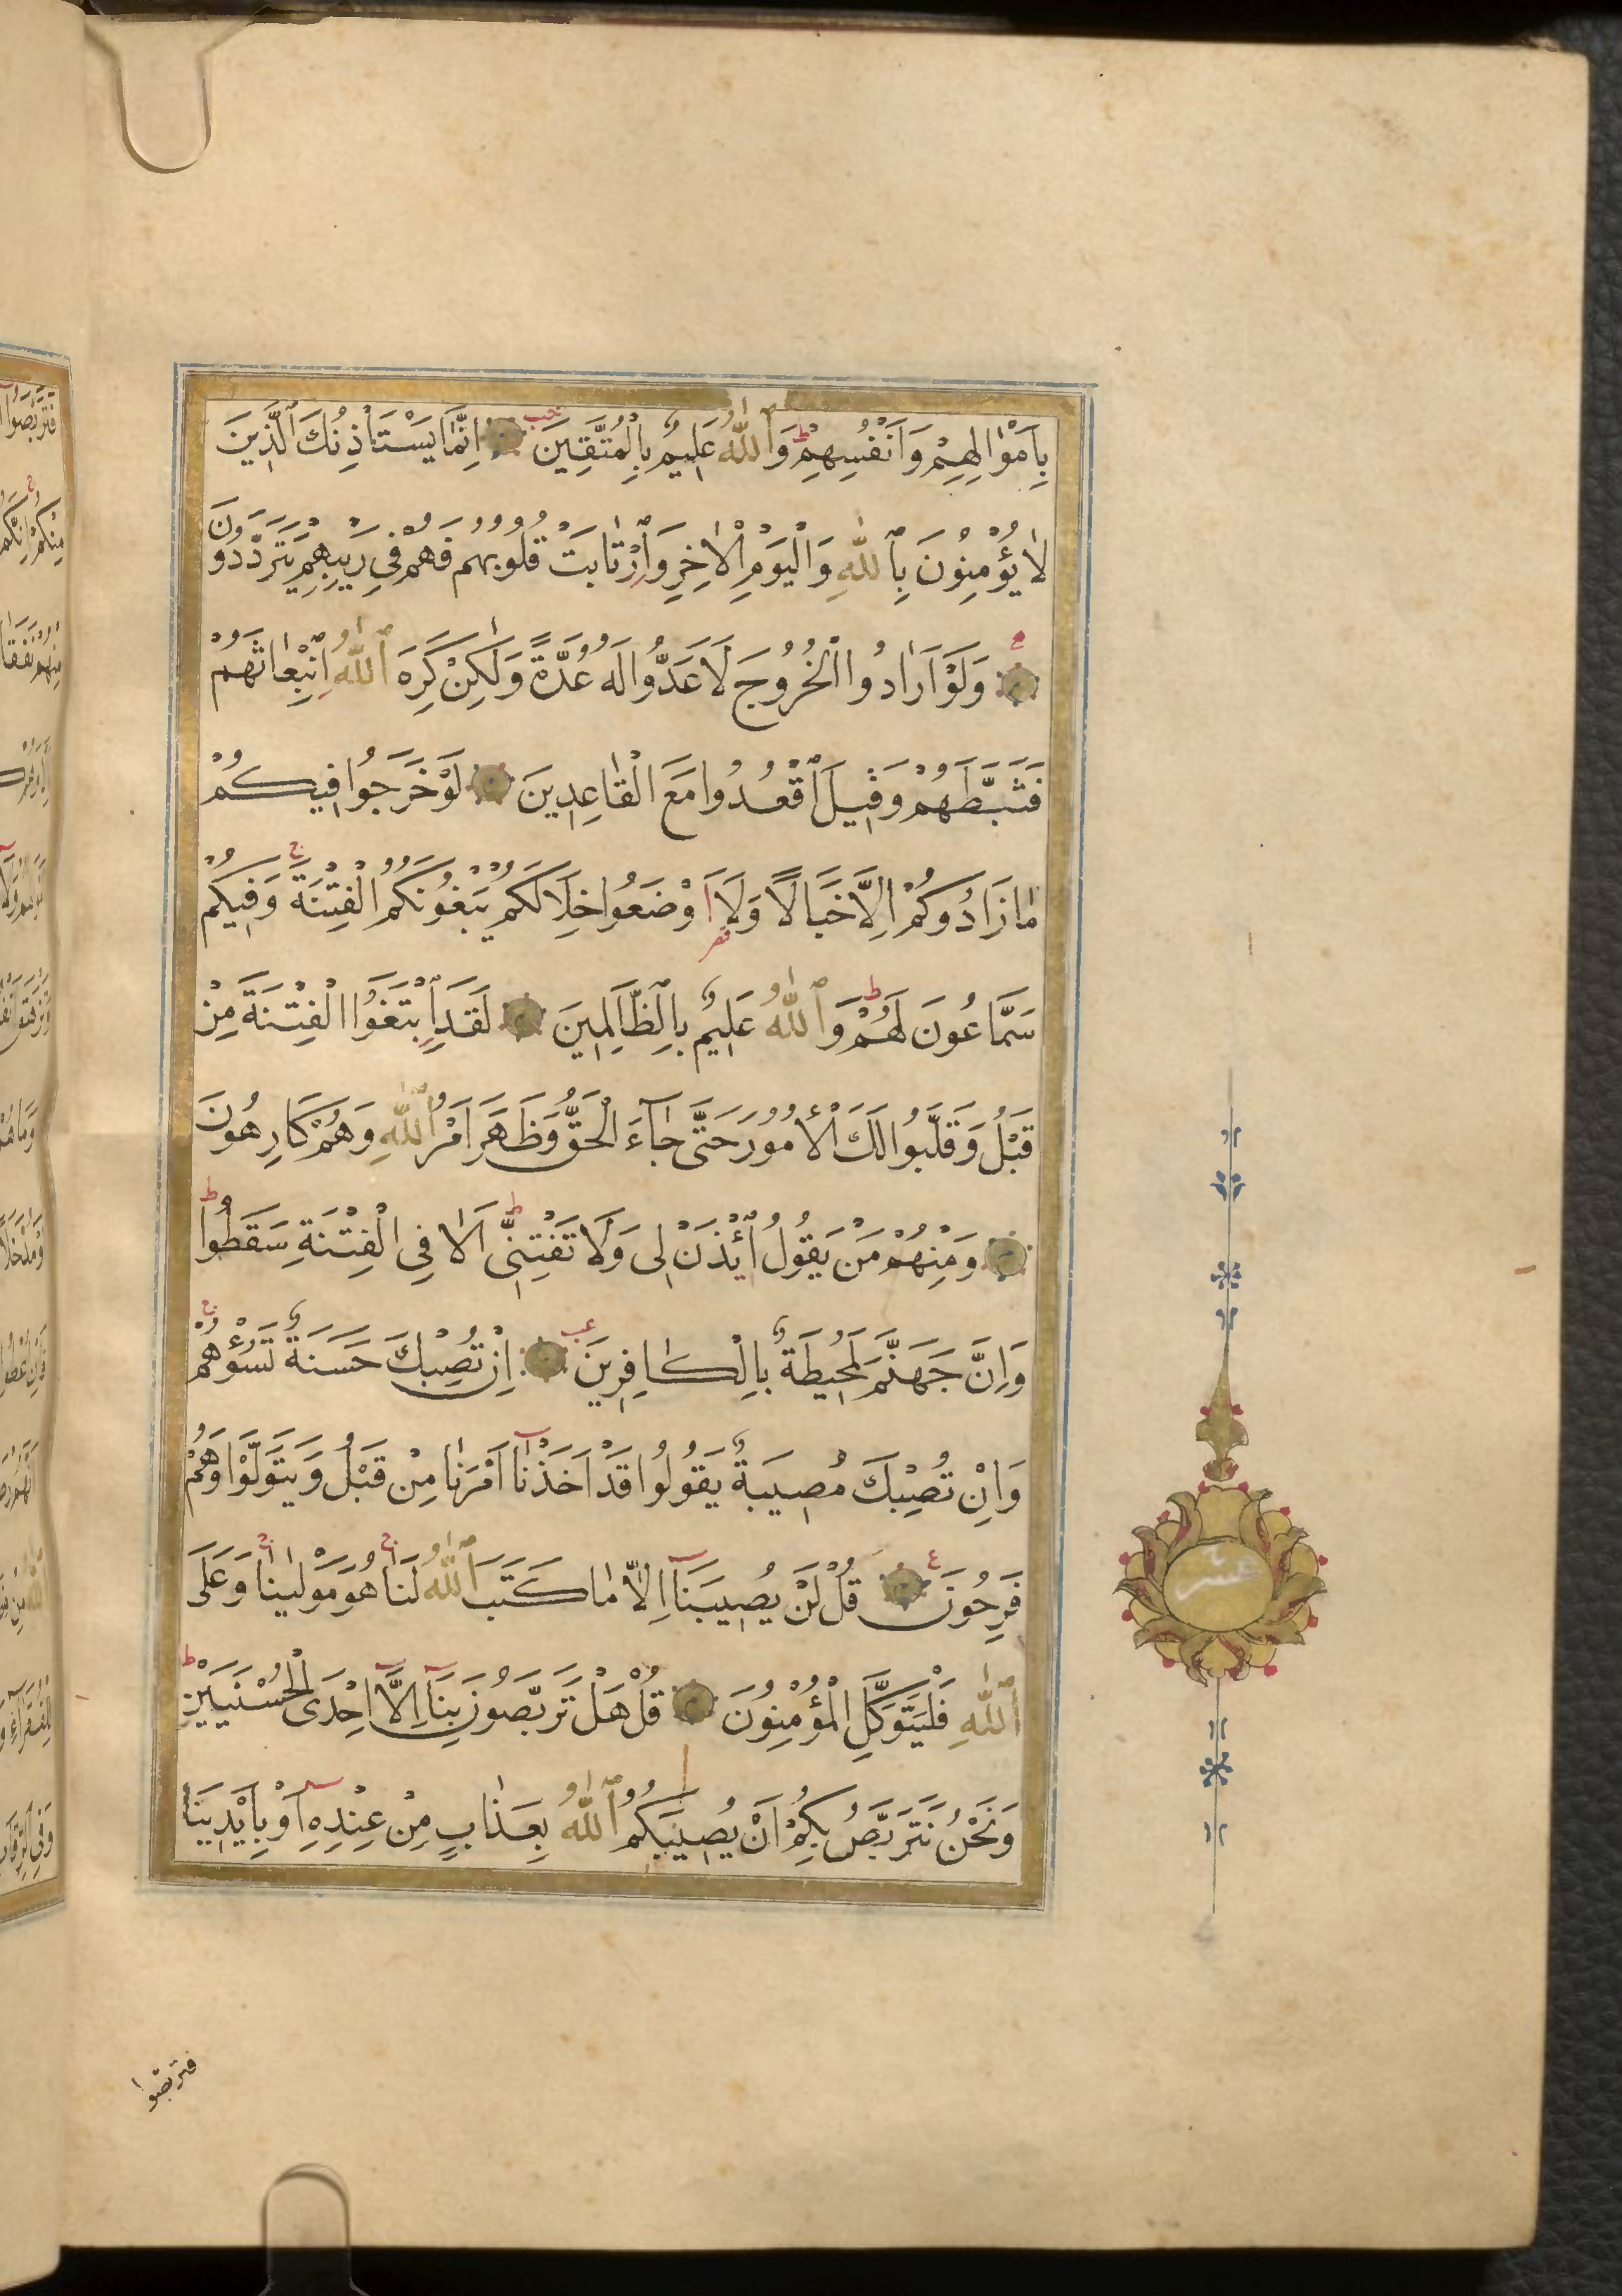 بِاَمْوٰالِهِمْ وَاَنْفُسِهِمْ ط وَاللّٰهُ عَلِيمٌ بِالْمُتَّقِينَ اِنَّمٰا يَسْتَاْذِنُكَ الَّذِينَ
لٰا يُؤْمِنُونَ بِاللّٰهِ وَالْيَوْمِ الْاٰخِرِ وَارْتٰابَتْ قُلُوبُهُمْ فَهُمْ فِي رَيْبِهِمْ يَتَرَدَّدُونَ
وَلَوْ اَرٰادُوا الْخُرُوجَ لَاَعَدُّوا لَهُ عُدَّةً وَلٰكِنْ كَرِهَ اللّٰهُ انْبِعٰاثَهُمْ
فَثَبَّطَهُمْ وَقِيلَ اقْعُدُوا مَعَ الْقٰاعِدِينَ لَوْ خَرَجُوا فِيكُمْ
مٰا زَادُوكُمْ اِلَّا خَبَالًا وَلَااَوْضَعُوا خِلَالَكُمْ يَبْغُونَكُمُ الْفِتْنَةَ ج وَفِيكُمْ
سَمَّاعُونَ لَهُمْ ط وَاللّٰهُ عَلِيمٌ بِالظَّالِمِينَ لَقَدِ ابْتَغَوُا الْفِتْنَةَ مِنْ
قَبْلُ وَقَلَّبُوا لَكَ الْأُمُورَ حَتَّى جَآءَ الْحَقُّ وَظَهَرَ اَمْرُ اللّٰهِ وَهُمْ كَارِهُونَ
وَمِنْهُمْ مَنْ يَقُولُ ائْذَنْ لِى وَلَا تَفْتِنِّى ط اَلَا فِي الْفِتْنَةِ سَقَطُوا ط
وَاِنَّ جَهَنَّمَ لَمُحِيطَةٌ بِالْكٰافِرِينَ اِنْ تُصِبْكَ حَسَنَةٌ تَسُؤْهُمْ ج
وَاِنْ تُصِبْكَ مُصِيبَةٌ يَقُولُوا قَدْ اَخَذْنٰآ اَمْرَنٰا مِنْ قَبْلُ وَيَتَوَلَّوْا وَهُمْ
فَرِحُونَ ع قُلْ لَنْ يُصِيبَنَآ اِلَّا مٰا كَتَبَ اللّٰهُ لَنَا ج هُوَ مَوْلٰينَا ج وَعَلَى
اللّٰهِ فَلْيَتَوَكَّلِ الْمُؤْمِنُونَ قُلْ هَلْ تَرَبَّصُونَ بِنَآ اِلَّآ اِحْدَى الْحُسْنَيَيْنِ ط
وَنَحْنُ نَتَرَبَّصُ بِكُمْ اَنْ يُصِيبَكُمُ اللّٰهُ بِعَذَابٍ مِنْ عِنْدِهِ اَوْ بِاَيْدِينَا
عشر
فتربصوا